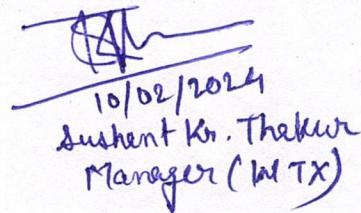 10/02/2024
Sushent Kr. Thakur
Manager ( TX)